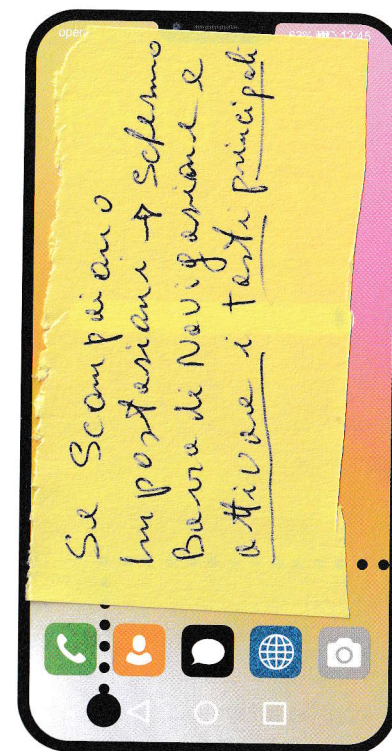 63% 12:45
Se Scompaiono
Impostazioni → Schermo
Barra di Navigazione e
attivare i tasti principali